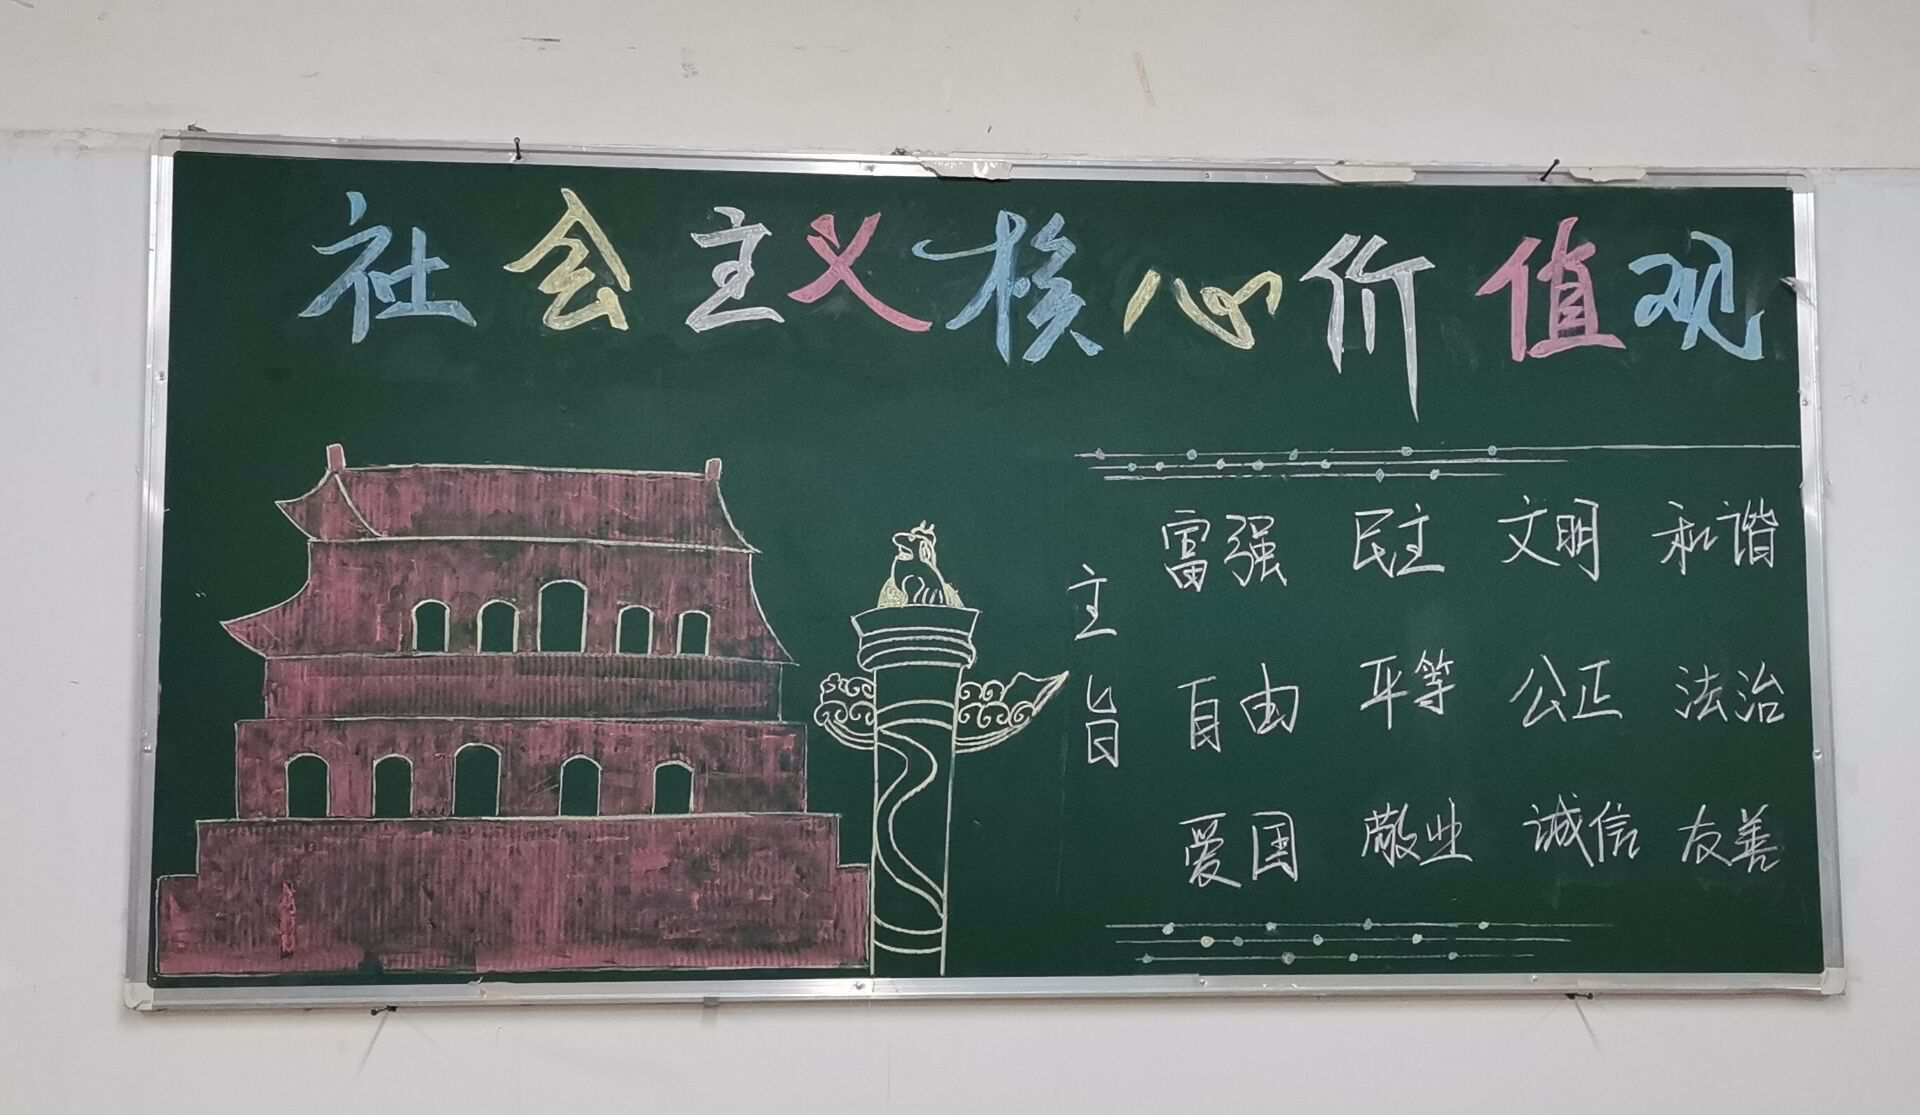 社会主义核心价值观
主旨
富强 民主 文明 和谐
自由 平等 公正 法治
爱国 敬业 诚信 友善